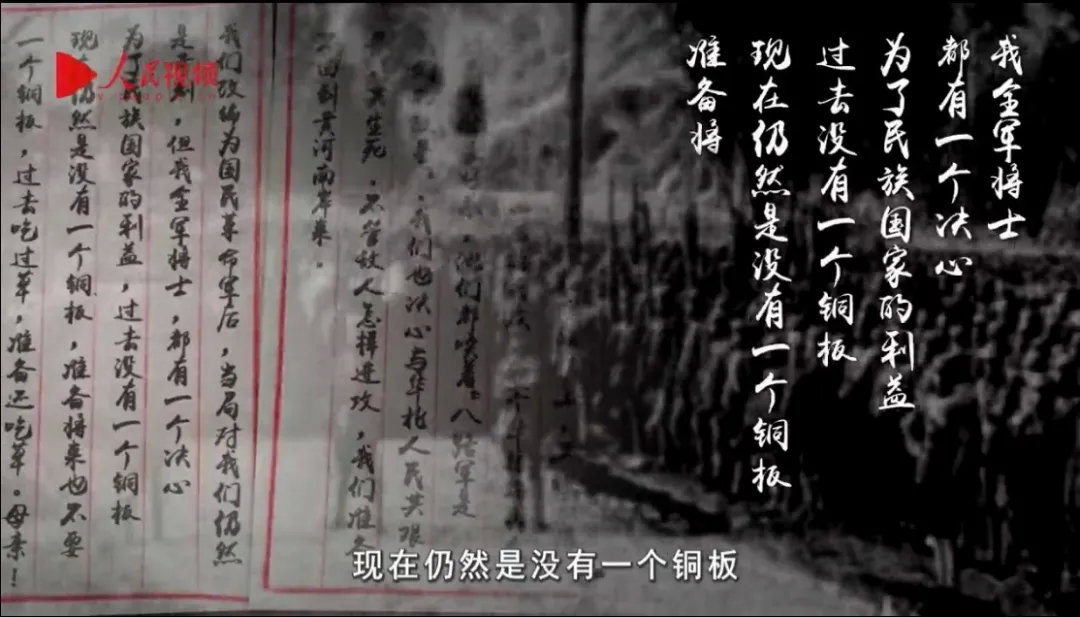 人民视频
我全军将士
都有一个决心
为了民族国家的利益
过去没有一个铜板
现在仍然是没有一个铜板
准备将
他们都喊着：八路军是
，我们也决心与华北人民共艰
生死，不管敌人怎样进攻，我们准备
不回到黄河南岸来。
我们改编为国民革命军后，当局对我们仍然
是，但我全军将士，都有一个决心
为了民族国家的利益，过去没有一个铜板
现在仍然是没有一个铜板，准备将来也不要
一个铜板，过去吃过草，准备还吃草。母亲！
现在仍然是没有一个铜板